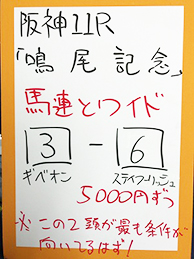 阪神11R
「鳴尾記念」
馬連とワイド
3 - 6
ギベオン ステイフーリッシュ
5000円ずつ
※この2頭が最も条件が
向いてるはず!